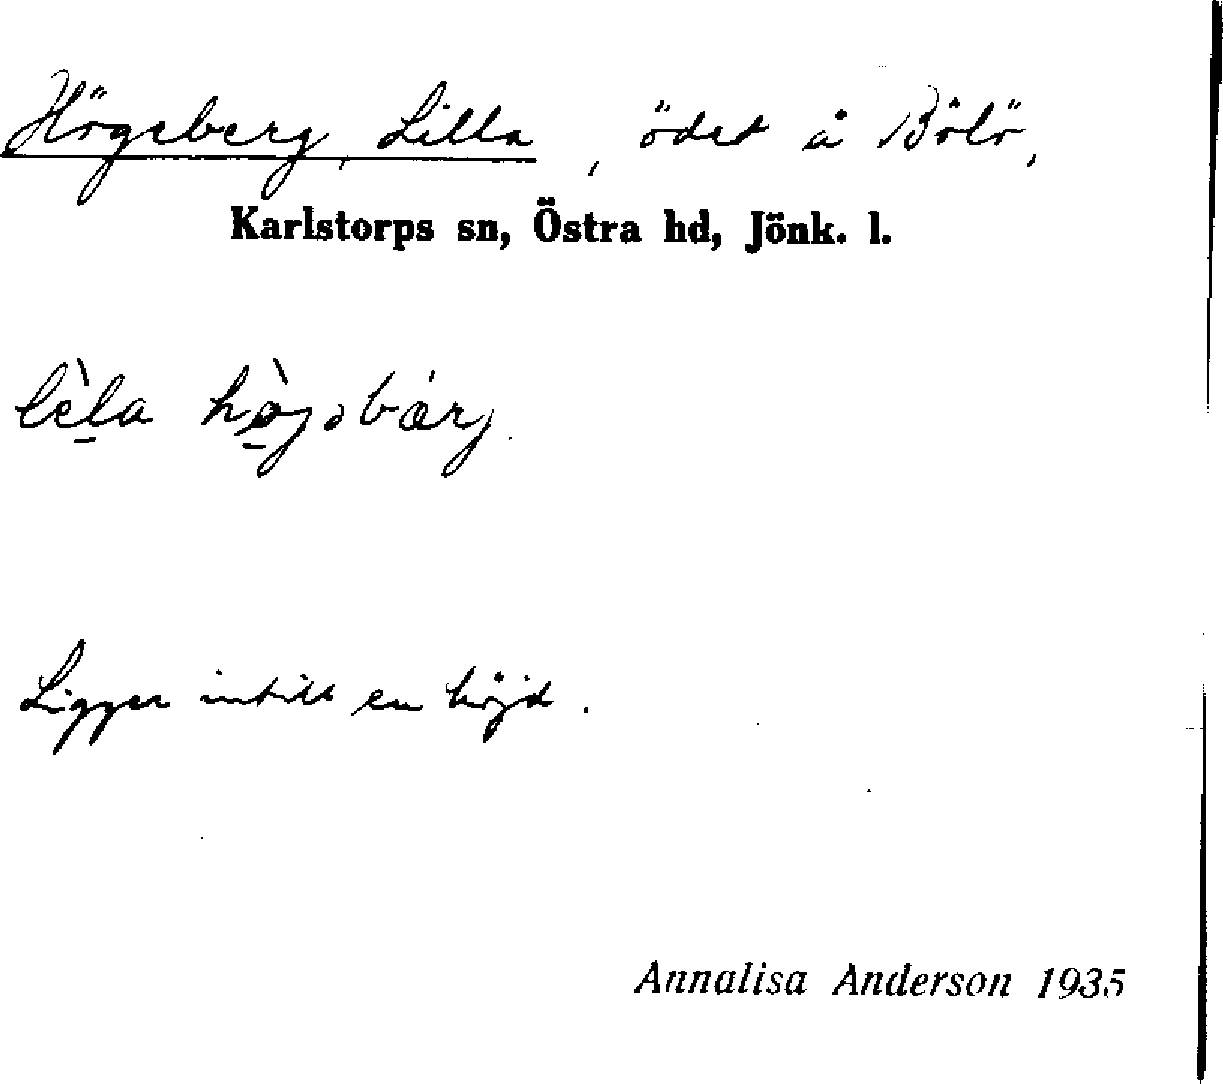 Högeberg, Lilla, ödet å Bölö,
Karlstorps sn, Östra hd, Jönk. l.
lè̠la
Ligger intill en höjd.
Annalisa Anderson 1935